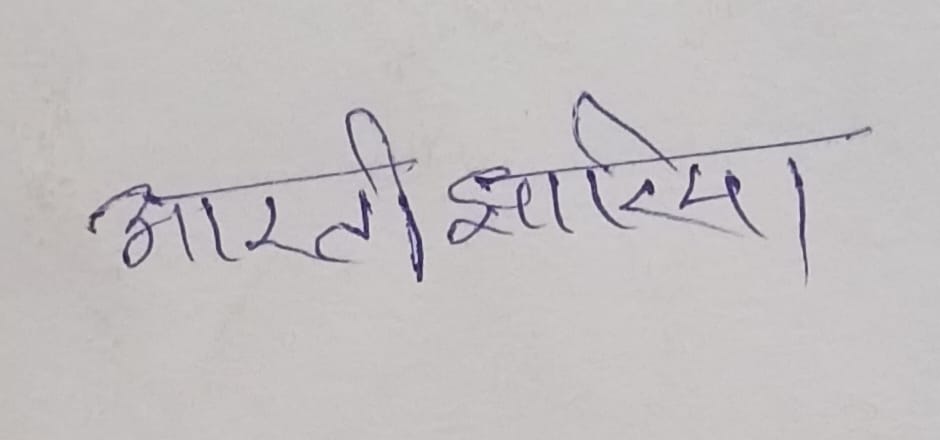 आरती झारिया